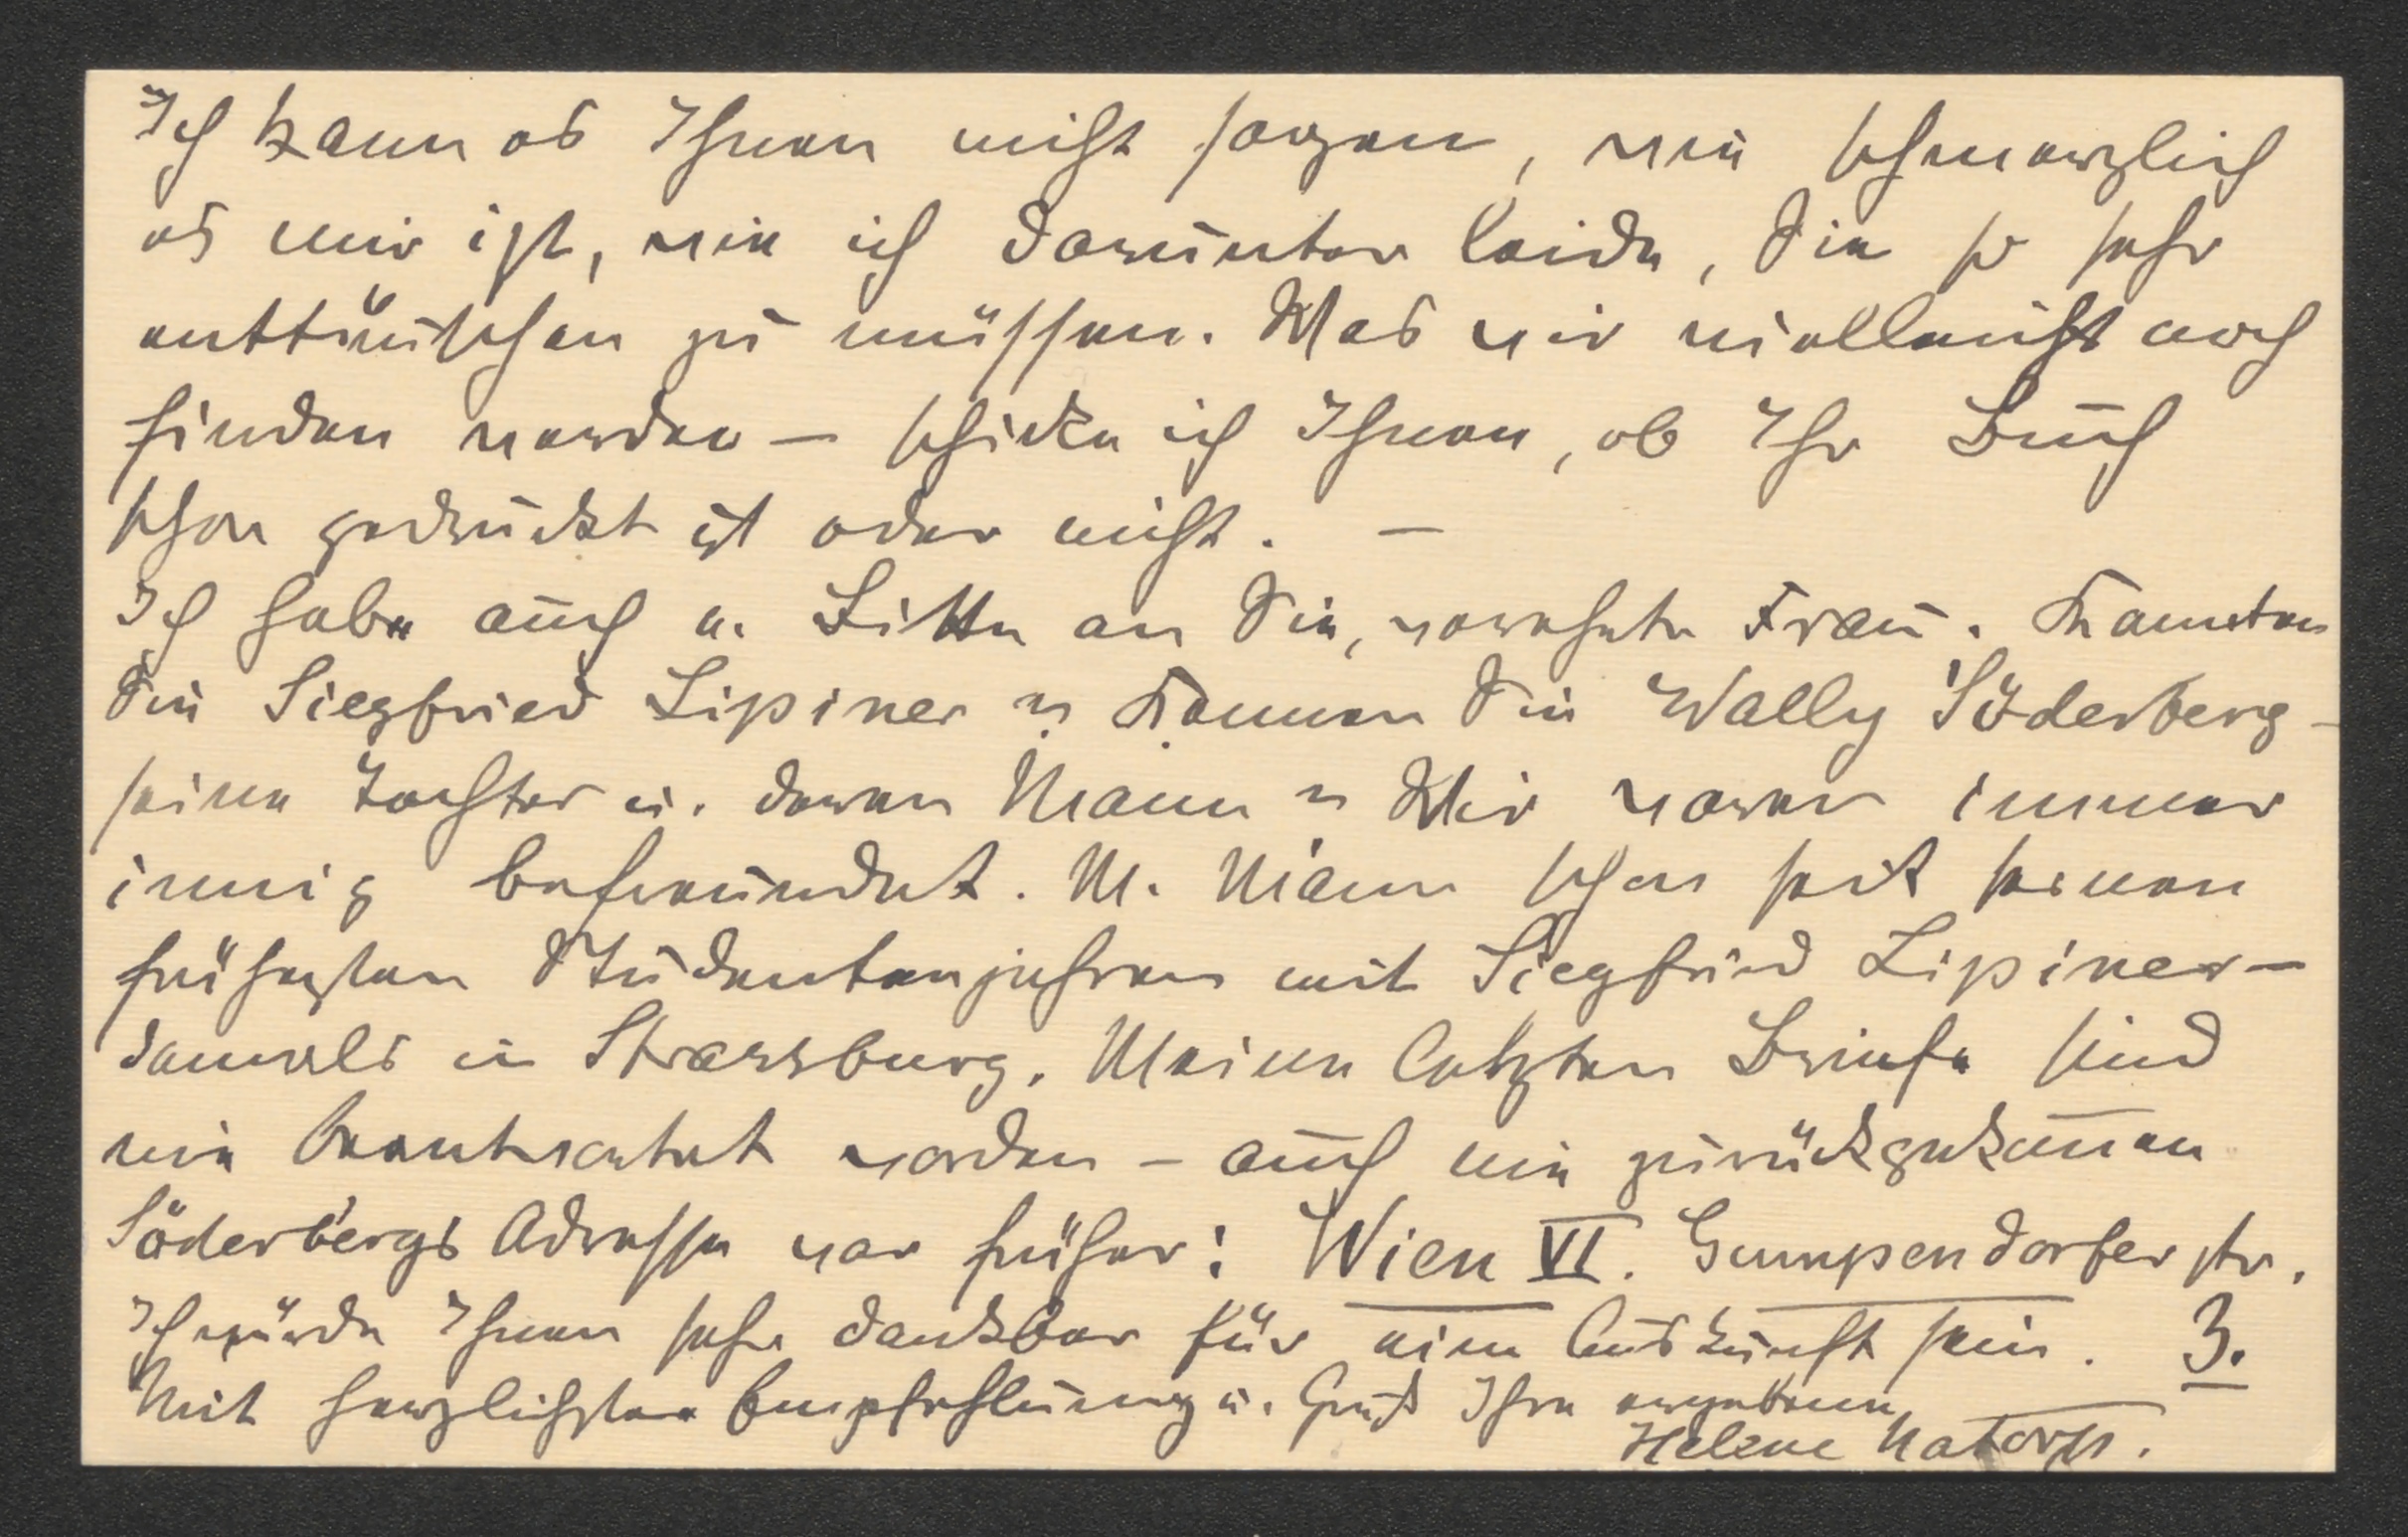 Ich kann es Ihnen nicht sagen, wie schmerzlich
es mir ist, wie ich darunter leide, Sie so sehr
enttäuschen zu müssen. Was wir vielleicht noch
finden werden – schicke ich Ihnen, ob Ihr Buch
schon gedruckt ist oder nicht. –
Ich habe auch e. Bitte an Sie, verehrte Frau. Kannten
Sie Siegfried Lipiner u. kennen Sie Wally Söderberg –
seine Tochter u. deren Mann? Wir waren immer
innig befreundet. M. Mann schon seit seinen
frühesten Studentenjahren mit Siegfried Lipiner –
damals in Strassburg. Meine letzten Briefe sind
nie beantwortet worden – auch nie zurückgekom̄en
Söderbergs Adresse war früher: Wien VI. Gumpendorferstr.
Ich würde Ihnen sehr dankbar für eine Auskunft sein. 3.
Mit herzlichster Empfehlung u. Gruß Ihre ergebene
Helene Natorp.